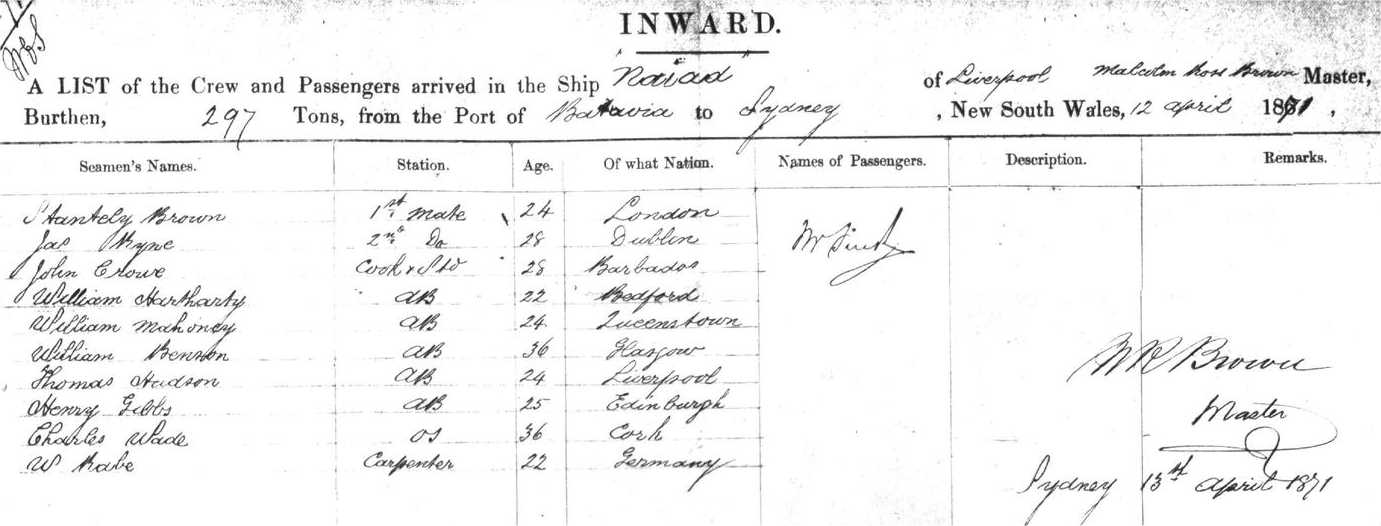 INWARD.
A LIST of the Crew and Passengers arrived in the Ship Naiad of Liverpool Malcolm Ross Brown Master,
Burthen, 297 Tons, from the Port of Batavia to Sydney, New South Wales, 12 April 1871,
Seamen's Names. Station. Age. Of what Nation. Names of Passengers. Description. Remarks.
Stantely Brown 1st Mate 24 London
Jas Ryne 2nd Do 28 Dublin Mr
John Crowe Cook & Std 28 Barbados
William Hartharty AB 22 Bedford
William Mahoney AB 24 Queenstown
William Benson AB 36 Glasgow
Thomas Hudson AB 24 Liverpool
Henry Gibbs AB 25 Edinburgh
Charles Wade OS 36 Cork
W Rabe Carpenter 22 Germany
MR Brown
Master
Sydney 13st April 1871